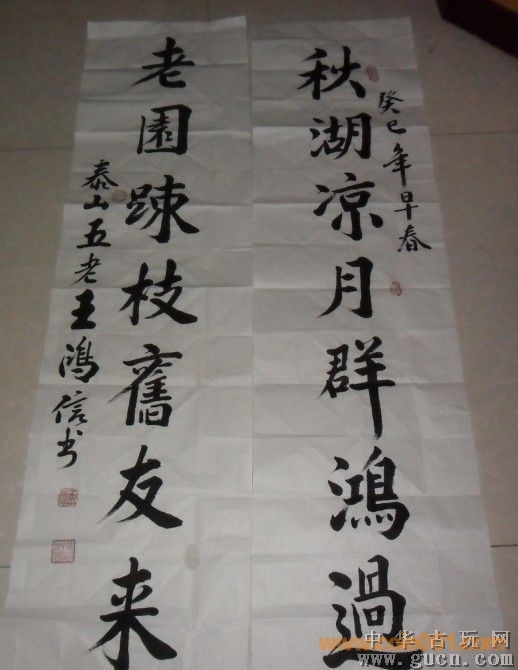 癸巳年早春
秋湖凉月群鴻過
老園踈枝舊友来
泰山五老王鴻信书
中华古玩网
www.gucn.com